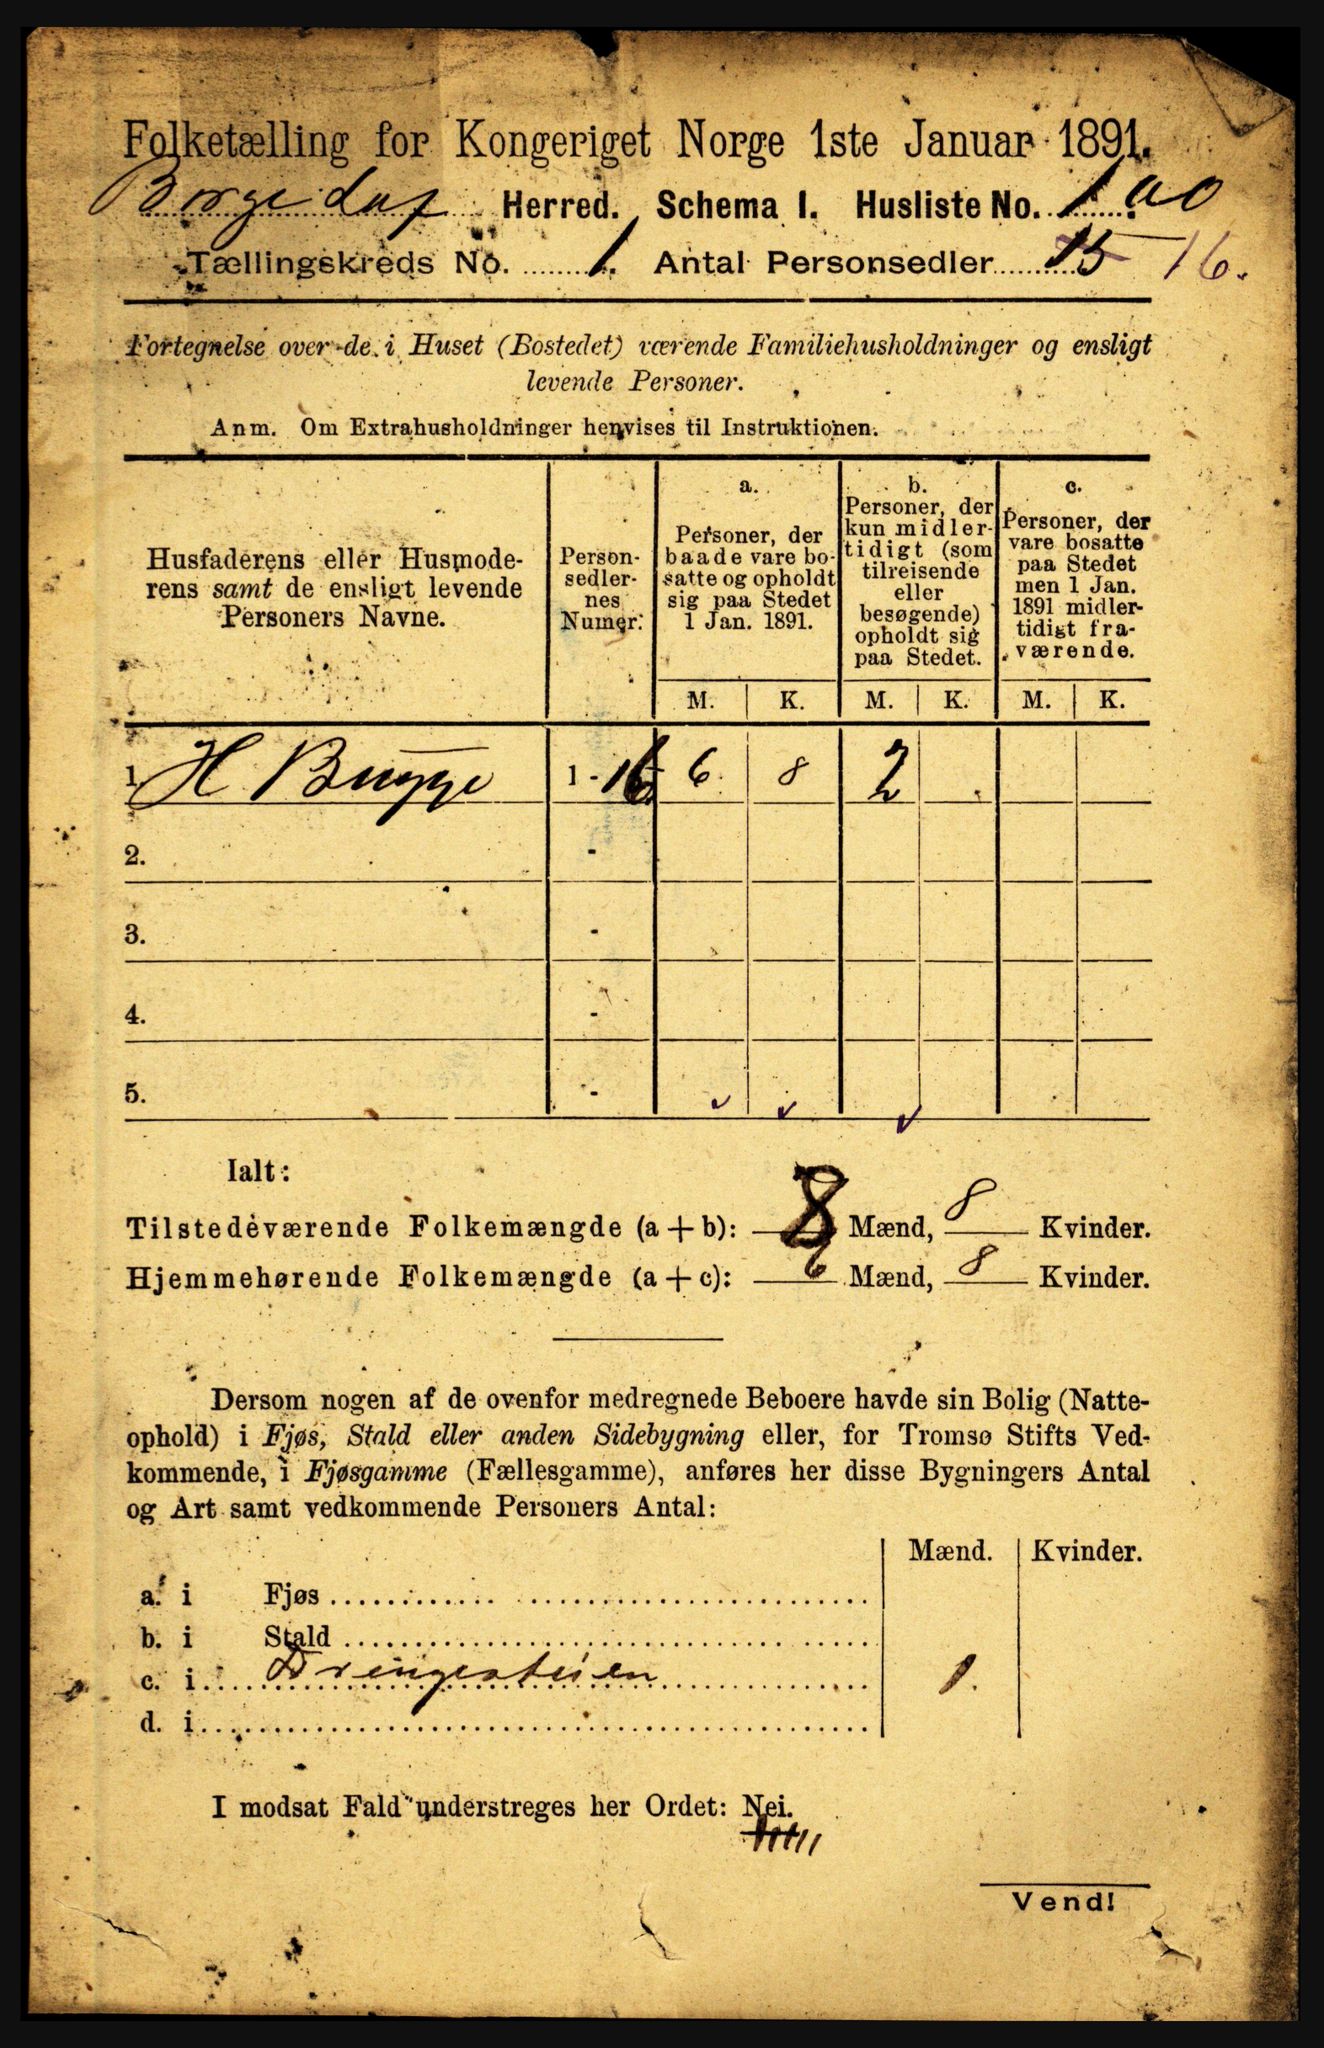 Folketælling for Kongeriget Norge 1ste Januar 1891.
Borge Herred. Schema I. Husliste No. 100
Tællingskreds No. 1. Antal Personsedler 15 16.
Fortegnelse over de i Huset (Bostedet) værende Familiehusholdninger og ensligt
levende Personer.
Anm. Om Extrahusholdninger henvises til Instruktionen.
Husfaderens eller Husmode-
rens samt de ensligt levende
Personers Navne.
Person-
sedler-
nes
Numer.
a.
Personer, der
baade vare bo-
satte og opholdt
sig paa Stedet
1 Jan. 1891.
b.
Personer, der
kun midler-
tidigt (som
tilreisende
eller
besøgende)
opholdt sig
paa Stedet.
c.
Personer, der
vare bosatte
paa Stedet
men 1 Jan.
1891 midler-
tidigt fra-
værende.
M. K. M. K. M. K.
1 H Bugge 1 - 16 6 8 2
2. -
3. -
4. -
5. -
Ialt:
Tilstedeværende Folkemængde (a + b): 8 Mænd, 8 Kvinder.
Hjemmehørende Folkemængde (a + c): 6 Mænd, 8 Kvinder.
Dersom nogen af de ovenfor medregnede Beboere havde sin Bolig (Natte-
ophold) i Fjøs, Stald eller anden Sidebygning eller, for Tromsø Stifts Ved-
kommende, i Fjøsgamme (Fællesgamme), anføres her disse Bygningers Antal
og Art samt vedkommende Personers Antal:
Mænd. Kvinder.
a. i Fjøs
b. i Stald
c. i Drengestuen 1.
d. i
I modsat Fald understreges her Ordet: Nei.
Vend!